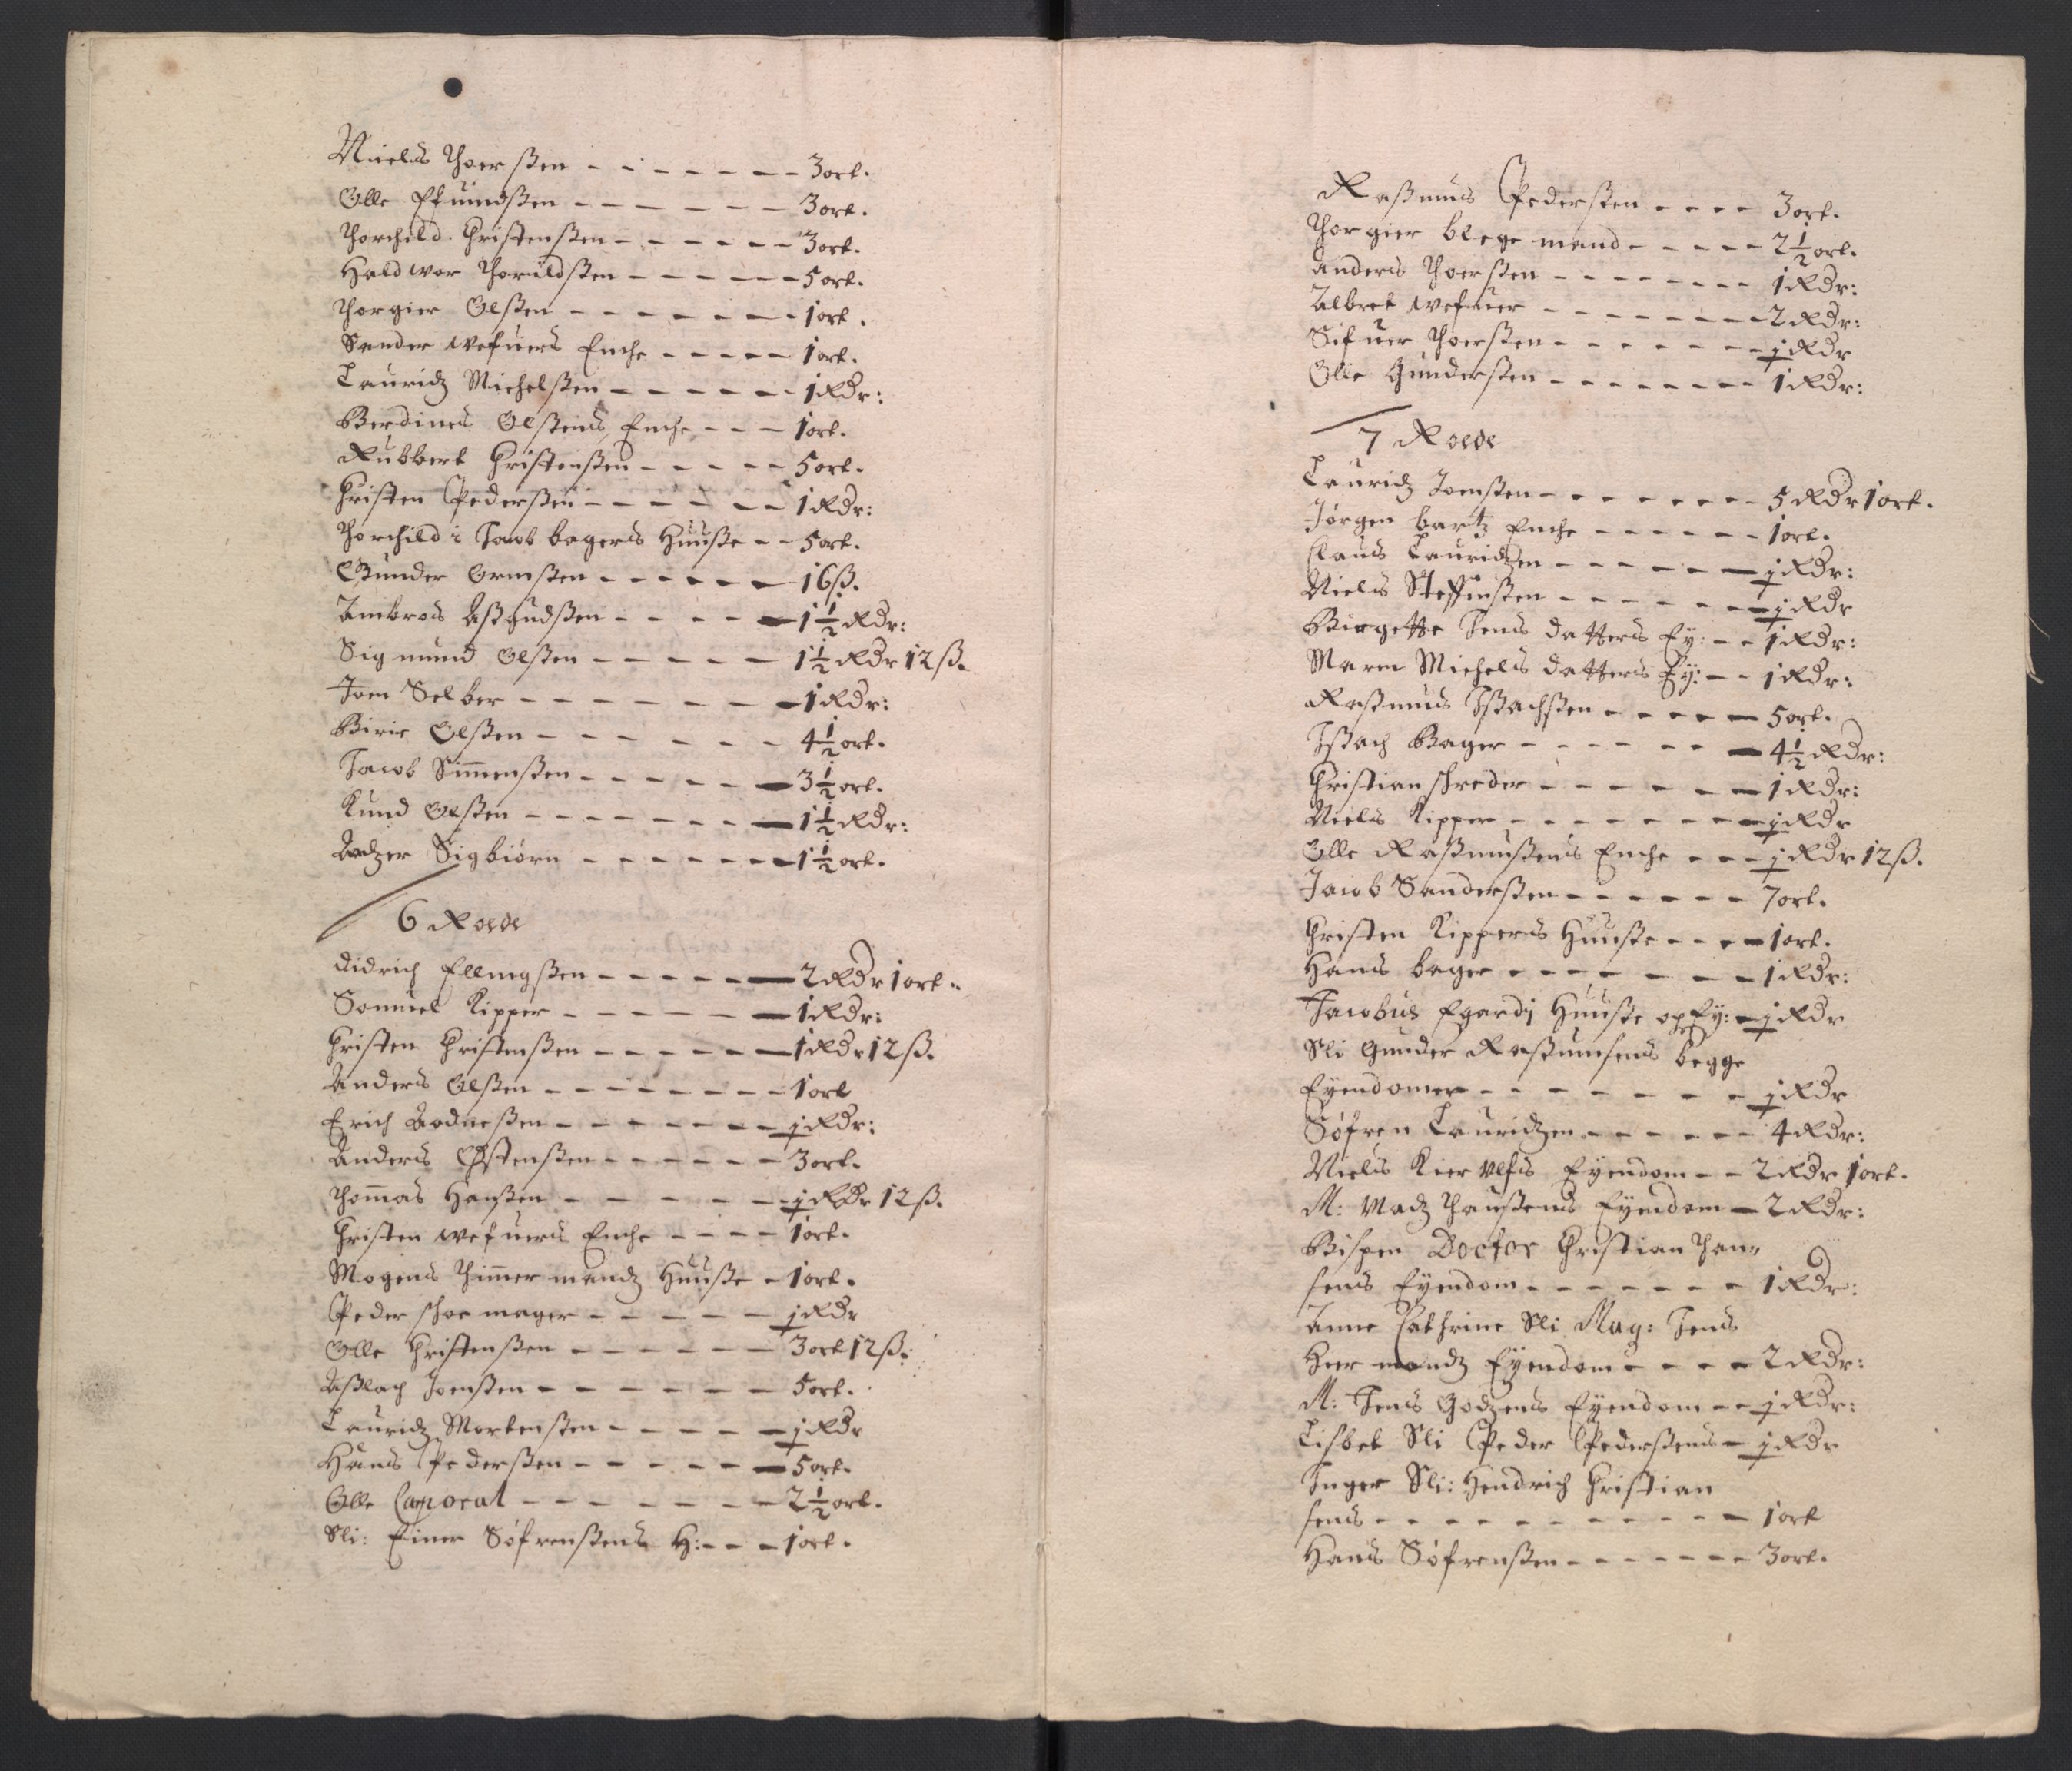 Niels Thorßen - - - - - - 3 ort.
Olle Efuindßen - - - - - - 3 ort.
Thorchild Christenßen - - - - - 3 ort.
Haldwor Thorildßen - - - - - 5 ort.
Thorgier Olßen - - - - - - - 1 ort.
Sander Wefuers Enche - - - - - 1 ort.
Lauridz Michelßen - - - - - - 1 Rdr:
Berdines Olßens Enche - - - 1 ort.
Rubbert Christenßen - - - - - 5 ort.
Christen Pederßen - - - - - - 1 Rdr:
Thorchild i Jacob bagers Huuße - - 5 ort.
Gunder Ormßen - - - - - - 16 ß.
Ambros Aßgudßen - - - - - 1½ Rdr:
Sigmund Olßen - - - - - 1½ Rdr 12 ß.
Joen Selber - - - - - - - 1 Rdr:
Birie Olßen - - - - - - 4½ ort.
Jacob Simmenßen - - - - - - 3½ ort.
Knud Olßen - - - - - - - 1½ Rdr:
Sigbiørn - - - - - - 1½ ort.
6 Roede
Didrich Ellingßen - - - - - - 2 Rdr 1 ort.
Samuel Kipper - - - - - - 1 Rdr:
Christen Christenßen - - - - - - 1 Rdr 12 ß.
Anders Olßen - - - - - - - - 1 ort
Erich Aodneßen - - - - - - - j Rdr:
Anders Østenßen - - - - - - 3 ort.
Thommas Hanßen - - - - - j Rdr 12 ß.
Christen Wefuers Enche - - - - 1 ort.
Mogens Thimmermandz Huuße - 1 ort.
Peder schoemager - - - - - j Rdr
Olle Christenßen - - - - - - 3 ort 12 ß.
Aßlach Joenßen - - - - - - 5 ort.
Lauridz Mortenßen - - - - - j Rdr
Hans Pederßen - - - - - - 5 ort.
Olle Caporal - - - - - - - 2½ ort.
Sli: Einer Søfrenßens H: - - - 1 ort.
Raßmus Pederßen - - - - 3 ort.
Thorgier blegemand - - - - - 2½ ort.
Anders Thorßen - - - - - - - - 1 Rdr:
Albret Wefuer - - - - - - - - 2 Rdr:
Sifuer Thorßen - - - - - - - j Rdr
Olle Gunderßen - - - - - - - - 1 Rdr:
7 Roede
Lauridz Joenßen - - - - - - - 5 Rdr 1 ort.
Jørgen bartz Enche - - - - - - 1 ort.
Claus Lauridzen - - - - - - j Rdr:
Niels Steffensßen - - - - - - j Rdr
Birgette Jens datters Ey: - - 1 Rdr:
Maren Michels datters Ey: - - 1 Rdr:
Raßmus Ißachßen - - - - - 5 ort.
Ißach Bager - - - - - - - 4½ Rdr:
Christian schreder - - - - - - 1 Rdr:
Niels Kipper - - - - - - - - j Rdr
Olle Raßmußens Enche - - - j Rdr 12 ß.
Jacob Sanderßen - - - - - - 7 ort.
Christen Kippers Huuße - - - - 1 ort.
Hans bager - - - - - - - 1 Rdr:
Jacobus Egardj Huuße og Ey: - j Rdr
Sli Gunder Raßmusens begge
Eyendomer - - - - - - - j Rdr
Søfren Lauridzen - - - - - - 4 Rdr:
Niels Kierulfs Eyendom - - 2 Rdr 1 ort.
M: Madz Hanßens Eyendom - 2 Rdr:
Bispen Doctor Christian Than,,
sens Eyendom - - - - - - - 1 Rdr:
Anne Cathrine Sli Mag: Jens
Heermandz Eyendom - - - - 2 Rdr:
M: Jens Godzens Eyendom - - j Rdr:
Lisbet Sli Peder Pederßens - j Rdr
Inger Sli: Hendrich Christian
sens - - - - - - - - - - - 1 ort
Hans Søfrenßen - - - - - - - 3 ort.